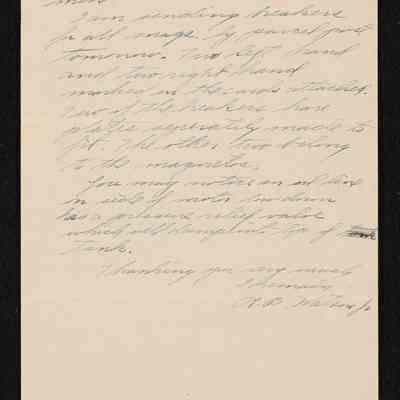 I am sending breakers
for all mags. by parcel post
tomorrow. Two left hand
and two right hand
marked on the cards attached.
Two of the breakers have
plates seperately made to
fit. The other two belong
to the magnetos.
You may notice an oil line
in side of motor
has a pressure relief valve
which will top of
tank.
Thanking you very much
I remain